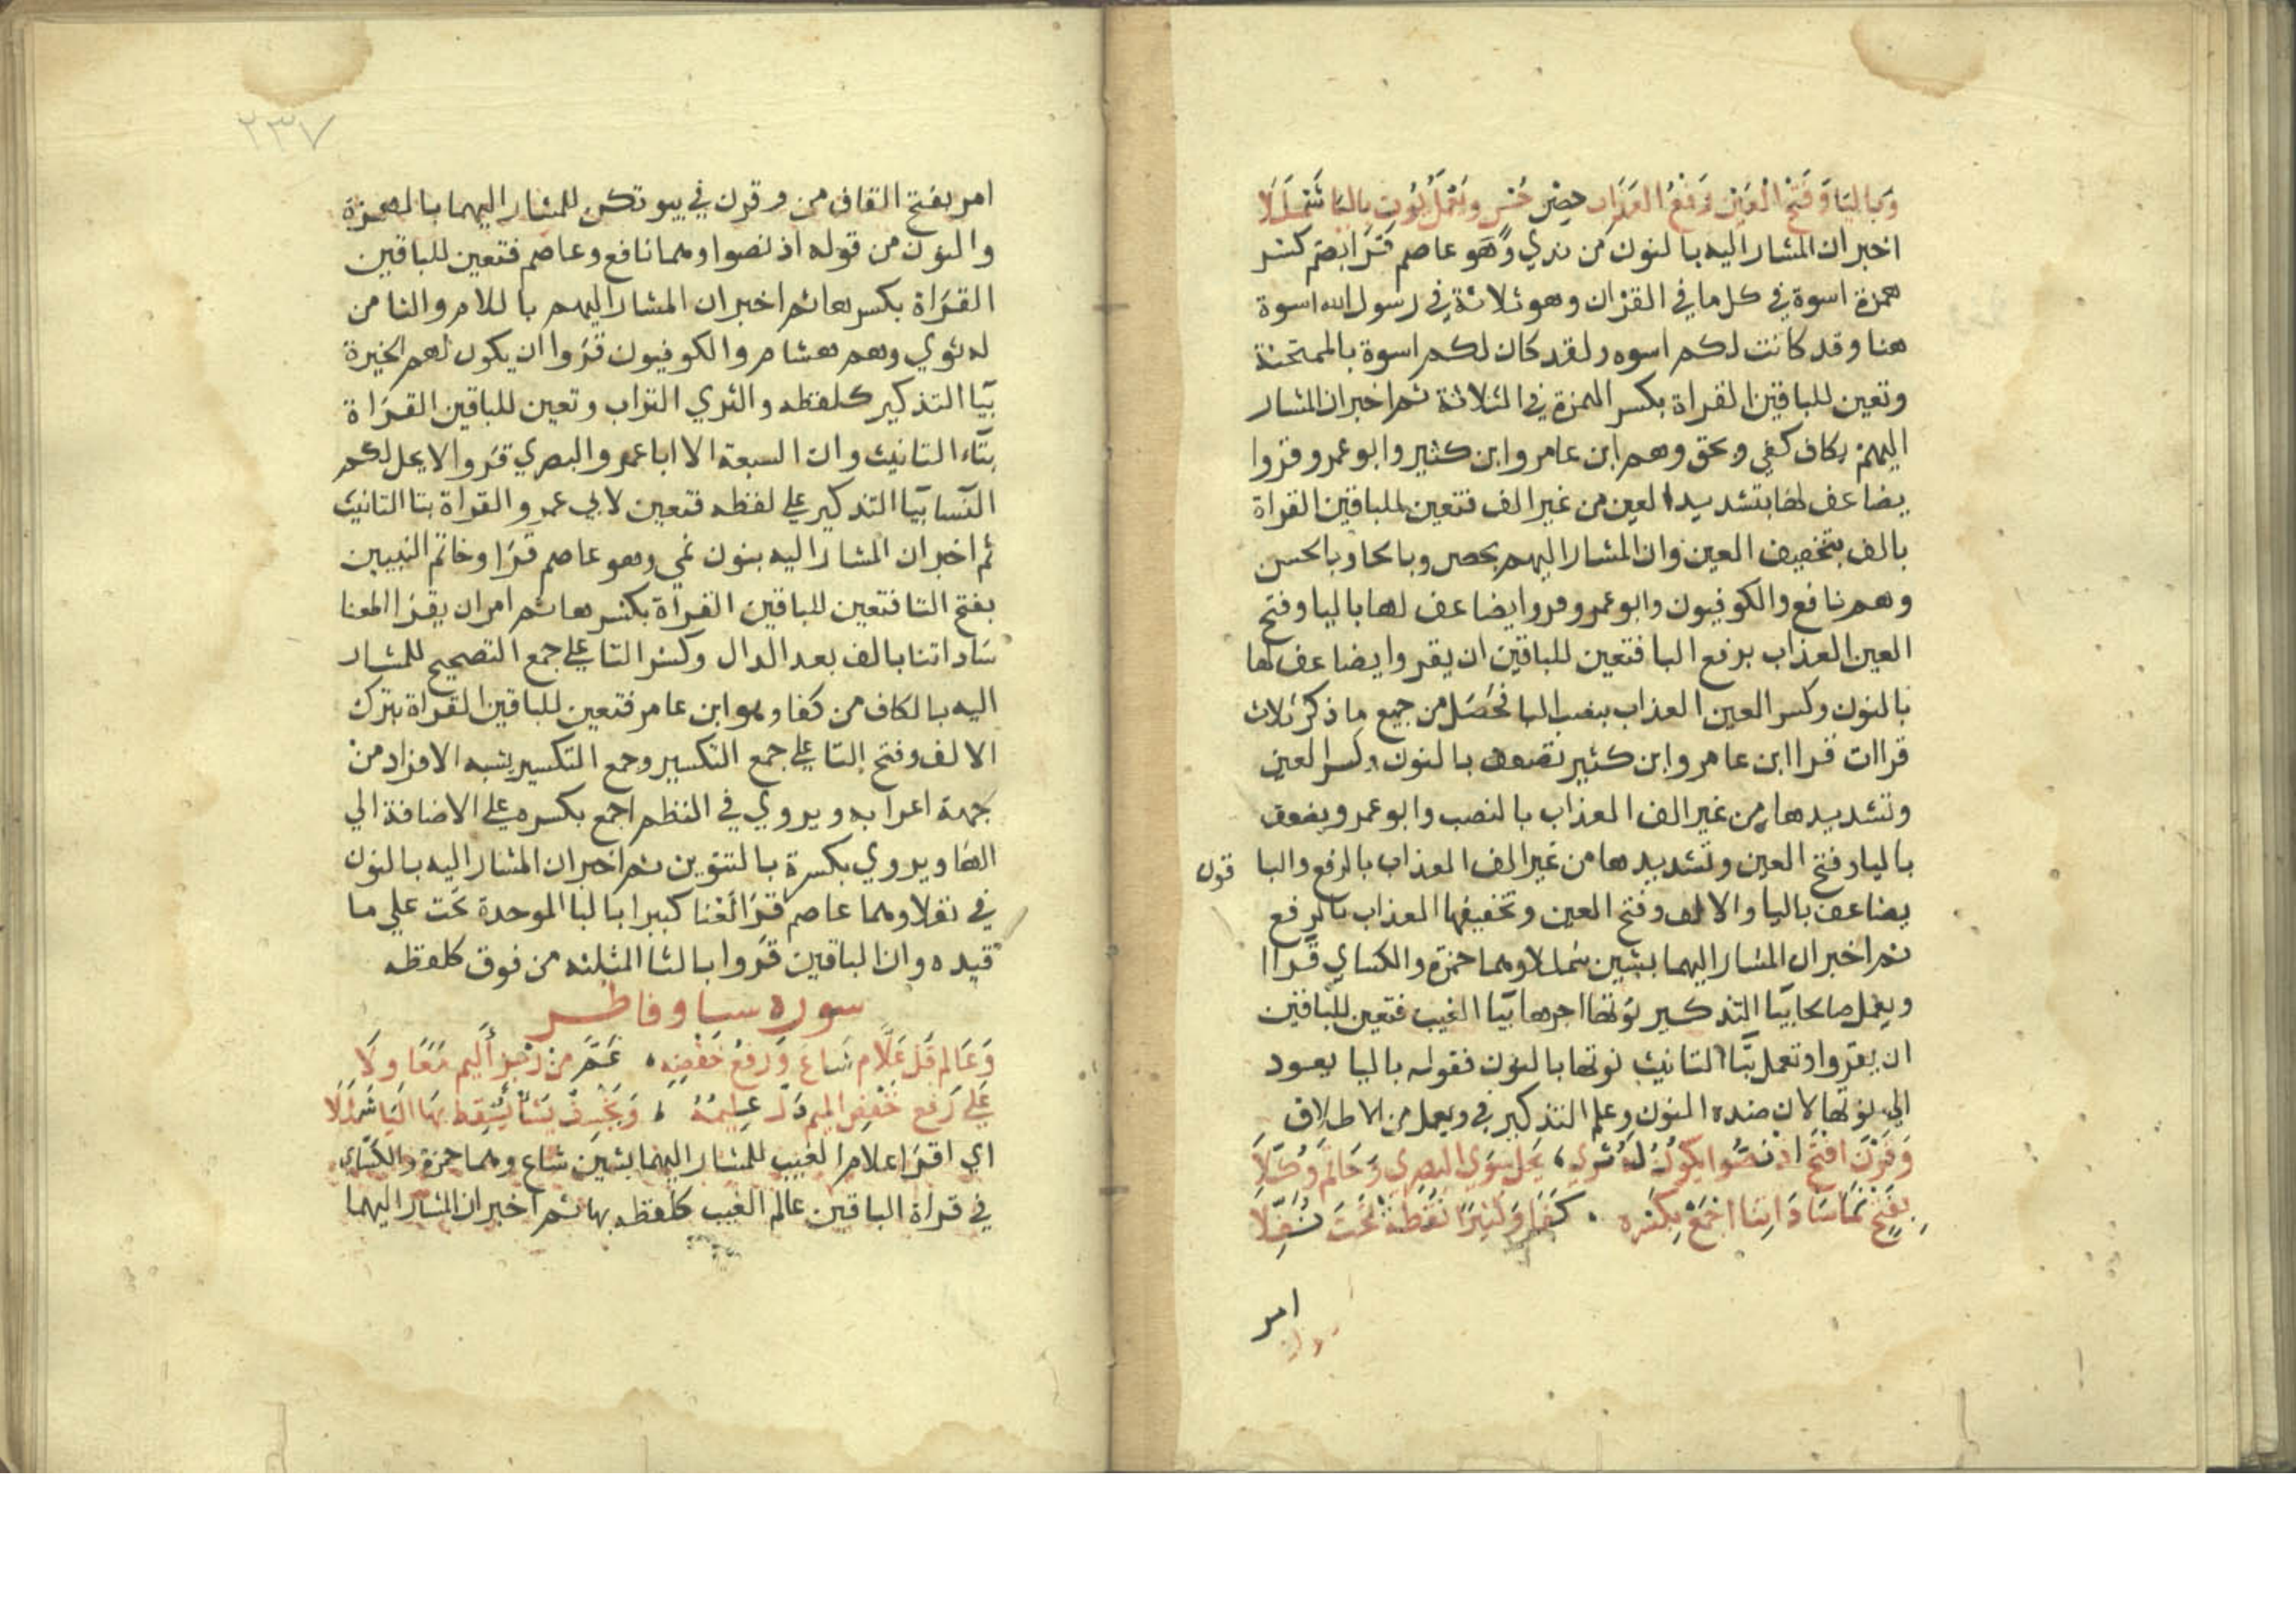 وَبِاليَا وَفَتْحِ الْعَيْنِ رَفْعُ العَذَابِ حِصْنِ حُسْنٍ وَيَعْمَلْ يُؤْتِ بِاليَا شَمْلَلَا
اخبر ان المشار اليه بالنون من ندي وهو عاصم قرا بضم كسر
همزة اسوة في كل ما في القران وهو ثلاثة في رسول الله اسوة
هنا وقد كانت لكم اسوه ولقد كان لكم اسوة بالممتحنة
وتعين للباقين القراة بكسر الهمزة في الثلاثة ثم اخبر ان المشار
اليهم بكاف كفي وبحق وهم ابن عامر وابن كثير وابو عمرو قروا
يضاعف لها بتشديد العين من غير الف فتعين للباقين القراة
بالف بتخفيف العين وان المشار اليهم بحصن وبالحا وبالحسن
وهم نافع والكوفيون وابو عمرو قروا يضاعف لها باليا وفتح
العين العذاب برفع البا فتعين للباقين ان يقروا يضاعف لها
بالنون وكسر العين العذاب بنصب البا فحصل من جميع ما ذكر ثلاث
قراات قرا ابن عامر وابن كثير نضعف بالنون وكسر العين
وتشديدها من غير الف العذاب بالنصب وابو عمرو يضعف
باليا وفتح العين وتشديدها من غير الف العذاب بالرفع والبا قون
يضاعف باليا والالف وفتح العين وتخفيفها العذاب بالرفع
ثم اخبر ان المشار اليهما بشين شمللا وهما حمزة والكساي قراا
ويعمل صالحا بيا التذكير يوتها اجرها بيا الغيب فتعين للباقين
ان يقروا وتعمل بتا التانيث نوتها بالنون فقوله باليا يعود
الي نوتها لان ضده النون وعلم التذكير في ويعمل من الاطلاق
وَقَرْنَ افْتَحِ اذْ نَصُّوا يَكُونَ لَهُ ثَرى، يَحِلُّ سِوَي البَصري وَخَاتَمَ وُكِّلَا
بِفَتْحٍ نَمَا سَادَاتِنَا اجْمَعْ بِكَسْرَةٍ . كَفَى وَكَثِيرًا نُقْطَةٌ تَحْتَ نُفِّلَا
امر
٢٣٧
امر بفتح القاف من وقرن في بيوتكن للمشار اليهما بالهمزة
والنون من قوله اذ نصوا وهما نافع وعاصم فتعين للباقين
القراة بكسرها ثم اخبر ان المشار اليهم باللام والثا من
له ثوي وهم هشام والكوفيون قروا ان يكون لهم الخيرة
بيا التذكير كلفظه والثري التراب وتعين للباقين القراة
بتاء التانيث وان السبعة الا ابا عمرو البصري قروا لا يحل لكم
النسا بيا التذكير علي لفظه فتعين لابي عمرو القراة بتا التانيث
ثم اخبر ان المشار اليه بنون نمي وهو عاصم قرا وخاتم النبيين
بفتح التا فتعين للباقين القراة بكسرها ثم امر ان يقرا اطعنا
ساداتنا بالف بعد الدال وكسر التا علي جمع التصحيح للمشار
اليه بالكاف من كفا وهو ابن عامر فتعين للباقين القراة بترك
الالف وفتح التا علي جمع التكسير وجمع التكسير يشبه الافراد من
جهة اعرابه ويروي في النظم اجمع بكسره علي الاضافة الي
الها ويروي بكسرة بالتنوين ثم اخبر ان المشار اليه بالنون
في نفلا وهما عاصم قرا لعنا كبيرا بالبا الموحدة تحت علي ما
قيده وان الباقين قروا بالثا المثلثه من فوق كلفظه
سوره سبا وفاطر
وَعَالِمِ قُلْ عَلَّامِ شَاعَ وَرَفْعُ خَفْضِهِ، عَمَّ مِنْ رِجْزٍ أَلِيمٍ مَعًا وِلَا
عَلَي رَفْعِ خَفْضِ المِيمِ دَلَّ عَلِيمُهُ ، وَيَخْسِفْ يَشَأْ يُسْقِطْ بِهَا اليَا شَمْلَلَا
اي اقرا علام الغيب للمشار اليهما بشين شاع وهما حمزة والكساي
في قراة الباقين عالم الغيب كلفظه بها ثم اخبر ان المشار اليهما